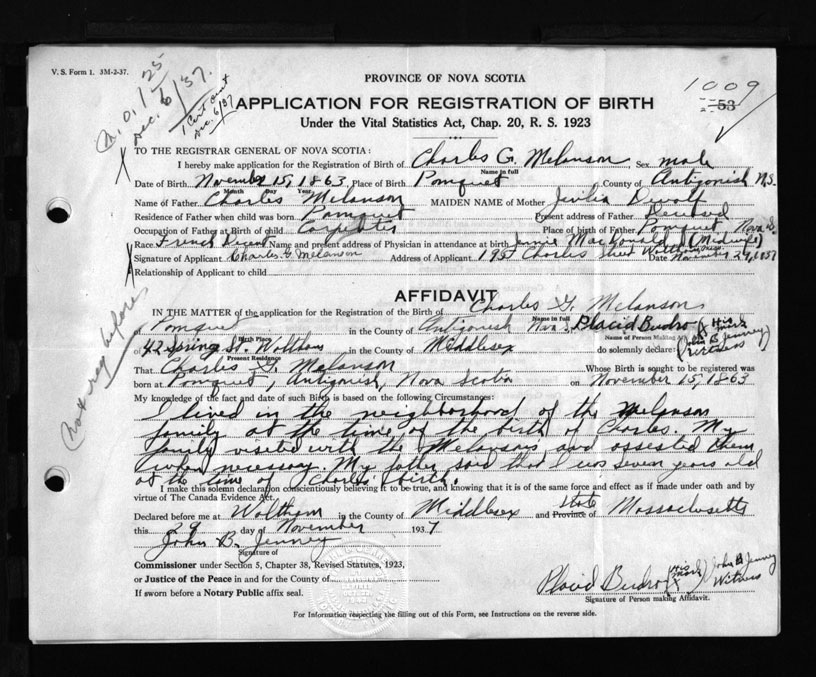 V. S. Form 1. 3M-2-37.
PROVINCE OF NOVA SCOTIA
1009
53
APPLICATION FOR REGISTRATION OF BIRTH
Under the Vital Statistics Act, Chap. 20, R. S. 1923
Dec. 6/37.
1 Cert sent
Dec. 6/37
TO THE REGISTRAR GENERAL OF NOVA SCOTIA:
I hereby make application for the Registration of Birth of Charles G. Melanson Sex male
Name in full
Date of Birth November 15, 1863 Place of Birth Pomquet County of Antigonish N.S.
Month Day Year
Name of Father Charles Melanson MAIDEN NAME of Mother
Residence of Father when child was born Pomquet Present address of Father Deceased
Occupation of Father at Birth of child Carpenter Place of birth of Father Pomquet, Nova S.
Race French Decent Name and present address of Physician in attendance at birth Jennie MacDonald (Midwife)
Signature of Applicant Charles G Melanson Address of Applicant 195 Charles Street Waltham Mass. Date November 29, 1937
Relationship of Applicant to child
AFFIDAVIT
Not reg before
IN THE MATTER of the application for the Registration of the Birth of Charles G. Melanson
Name in full
of Pomquet in the County of Antigonish Nova S. Placid Budro X His mark
Birth Place
Name of Person Making
John B Jenney witness
of 42 Spring St. Waltham in the County of Middlesex do solemnly declare:
Present Residence
That Charles G. Melanson Whose Birth is sought to be registered was
born at Pomquet, Antigonish, Nova Scotia on November 15, 1863
My knowledge of the fact and date of such Birth is based on the following Circumstances:
I lived in the neighborhood of the Melanson
family at the time of the birth of Charles. My
family visited with the Melansons and assisted them
when necessary. My father said that I was seven years old
at the time of Charles' birth.
I make this solemn declaration conscientiously believing it to be true, and knowing that it is of the same force and effect as if made under oath and by
virtue of The Canada Evidence Act.
Declared before me at Waltham in the County of Middlesex and Province State of Massachusetts
this 29 day of November 1937
John B. Jenney
Signature of
Commissioner under Section 5, Chapter 38, Revised Statutes, 1923,
or Justice of the Peace in and for the County of
If sworn before a Notary Public affix seal.
Placid Budro X His mark John B Jenney Witness
Signature of Person making Affidavit.
For Information respecting the filling out of this Form, see Instructions on the reverse side.